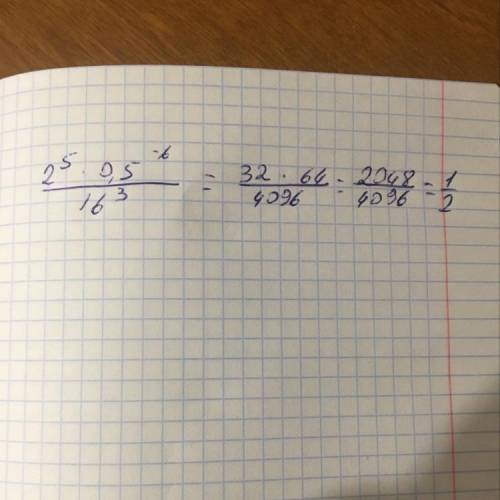 2^5 · 0,5^-6 / 16^3 = 32 · 64 / 4096 = 2048 / 4096 = 1 / 2